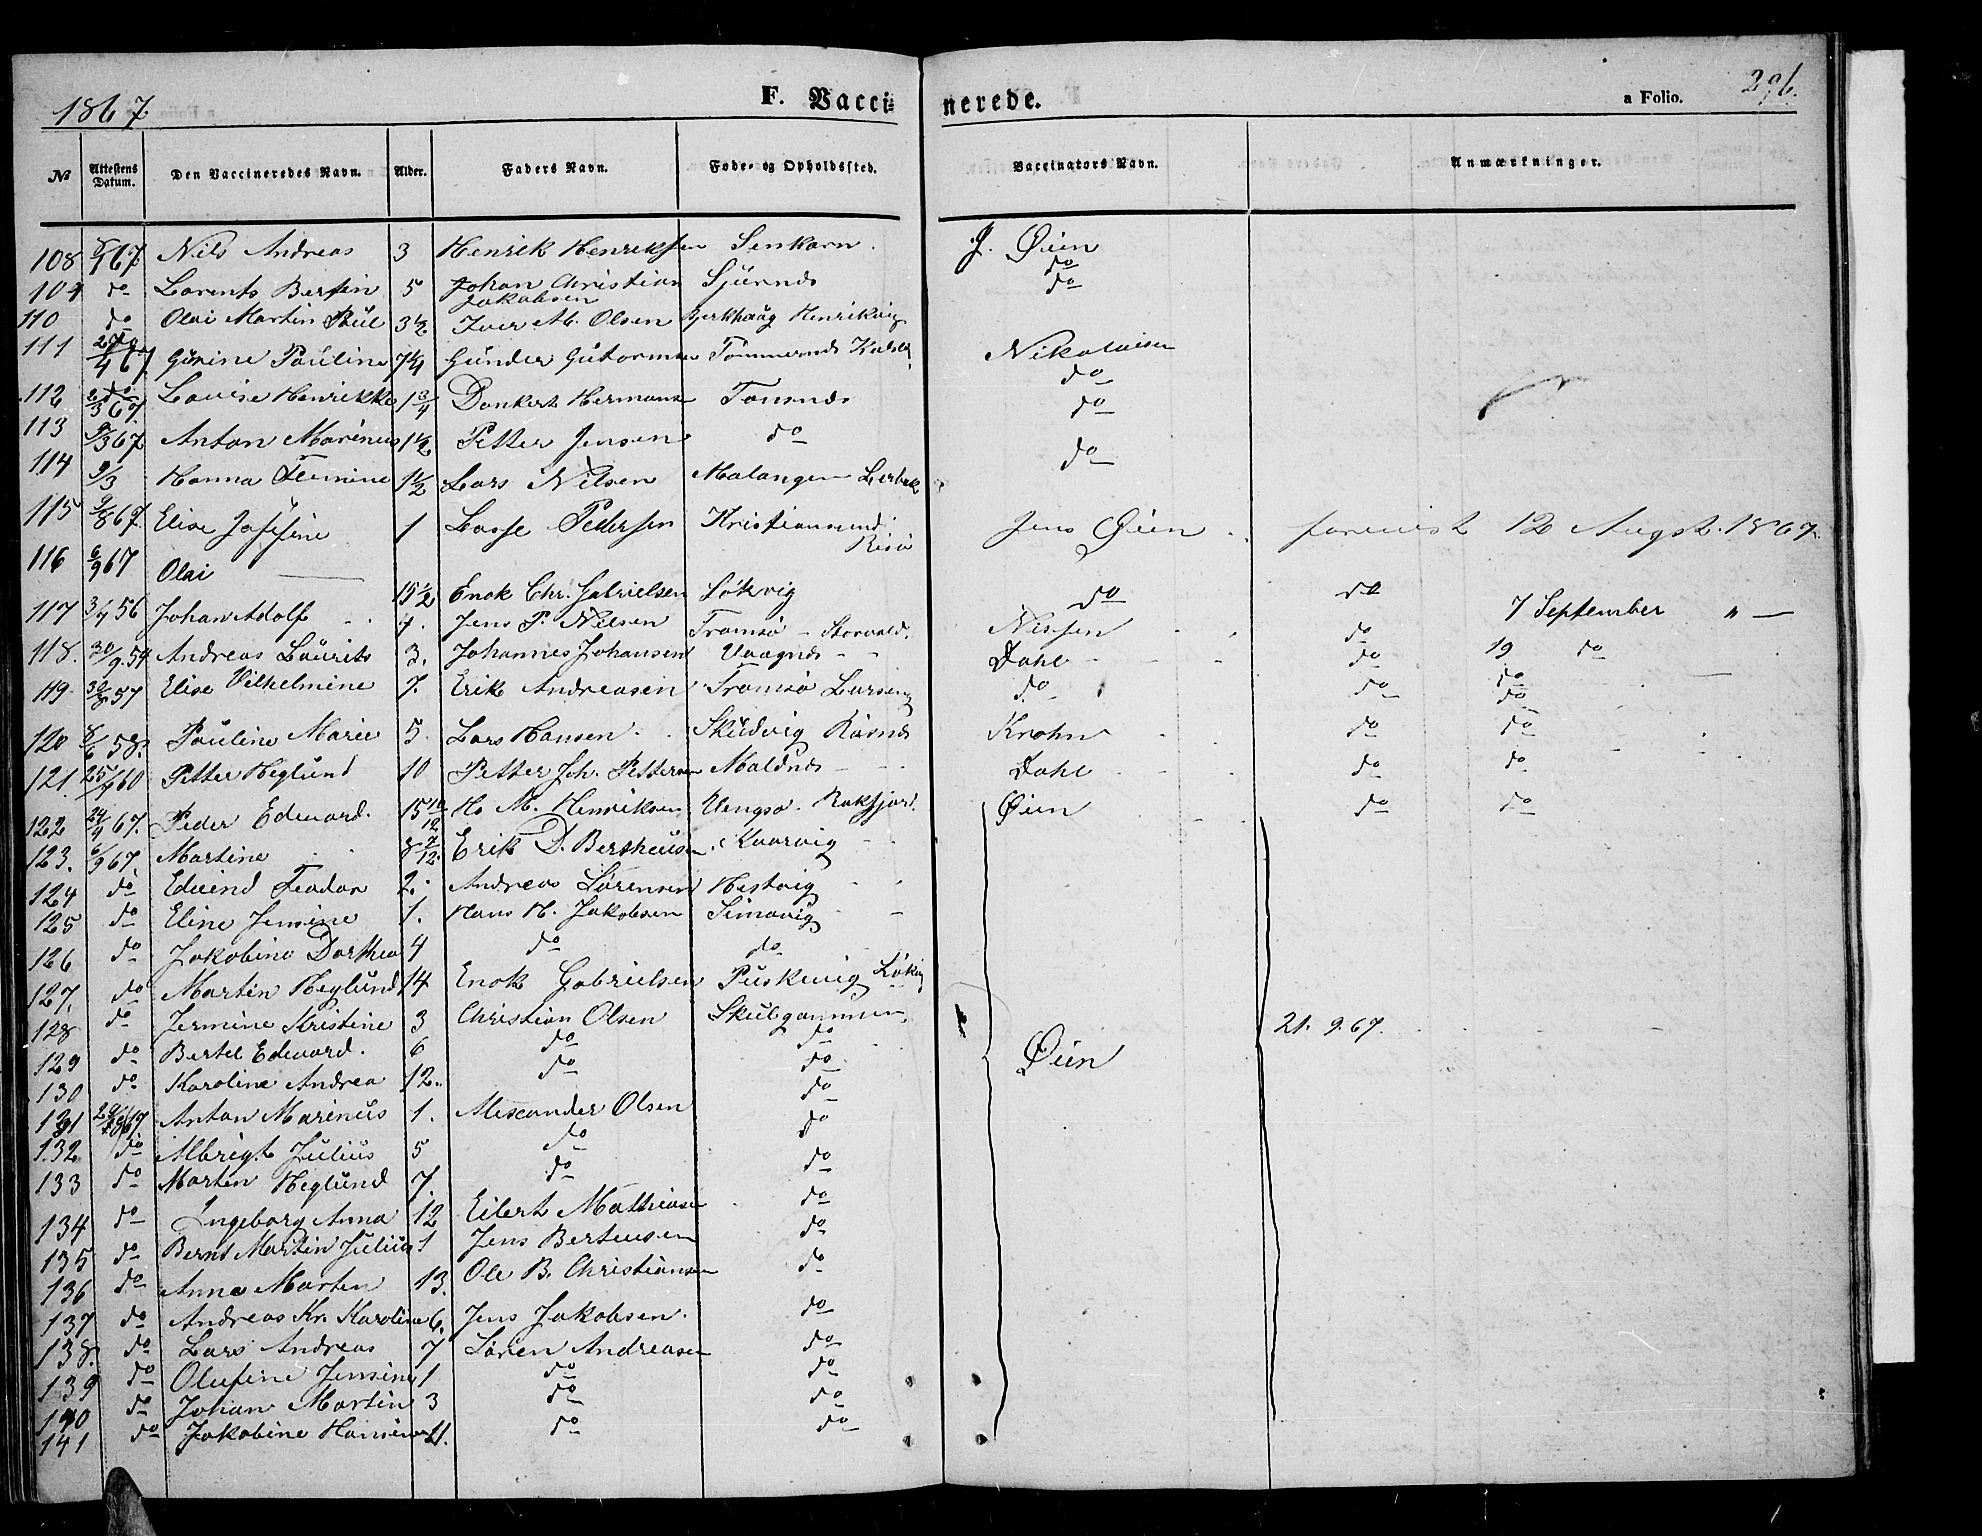 1867.
F. Vaccinerede.
a Folio. 296.
№ Attestens Datum. Den Vaccineredes Navn. Alder. Faders Navn. Føde- og Opholdssted. Vaccinators Navn. Anmærkninger.
108 67. Nils Andreas 3 Henrik Henriksen J. Øien
109 do Lorents Bersin 5 Johan Christian Jakobsen do do
110 do Olai Martin 3 1/2 Iver M. Olsen Henrikvig
111 67. Gurine Pauline 7 1/4 Gunder Gutormsen Tømmernæs Nikolaisen
112 2/3 67. Lovise Henrikke 1 3/4 Dankert Hermansen Tonsnæs do
113 9/3 67 Anton Marinus 1 1/2 Petter Jensen do do
114 9/3 Hanna 1 1/2 Lars Nilsen Malangen do
115 9/8 67. Elise Josefine 1 Lasse Pedersen Kristiansund Risø Jens Øien forevist 12 Augst. 1867.
116 6/9 67 Olai 15 1/2 Enok Chr. Gabrielsen Løkvig do do 7 September " —
117 3/7 56 Johan Adolf 4. Jens P. Nilsen Tromsø - Nissen do 19 do
118. 30/9. 54 Andreas Laurits 3. Johannes Johansen Vaagnæs Dahl do do
119 57 Elise Vilhelmine 7. Erik Andreasen Tromsø do do do
120 8/6 58. Pauline Marie 5. Lars Hansen Skulvig Krohn do do
121. 60 Petter Heglund 10 Petter Joh. Pettersen Maldnæs Dahl do do
122 67. Peder Edevard. 15 10/12 H. M. Henriksen Vengsø. Øien do do
123. 6/9 67. Martine 8 Erik D. Bertheusen Kvarvig
124 do Edvind Teodor 2. Andreas Sørensen Hestvig
125 do Eline Jensine 1. Hans H. Jakobsen Simavig
126 do Jakobine Dorthea 4 do do
127. do Martin Heglund 14 Enok Gabrielsen Løkvig
128 do Jermine Kristine 3 Christian Olsen Skulgammen. 21. 9. 67.
129 do Bertel Edevard. 6 do do Øien
130 do Karoline Andrea 12. do do
131 67 Anton Marinus 1. Alexander Olsen do
132 do Albrigt Julius 5 do do
133 do Morten Heglund 7 do do
134 do Ingeborg Anna 12 Eilert Mathiasen do
135 do Bernt Martin Julius 1 Jens Berteusen do
136 do Anne Marten 13. Ole B. Christiansen do
137 do Andreas Kr. Karoline 6. Jens Jakobsen. do
138. do Lars Andreas 7 Søren Andreasen do
139 do Olufine Jensine 1 do do
140 do Johan Martin 3 do do
141 do Jakobine Hansine 11. do do